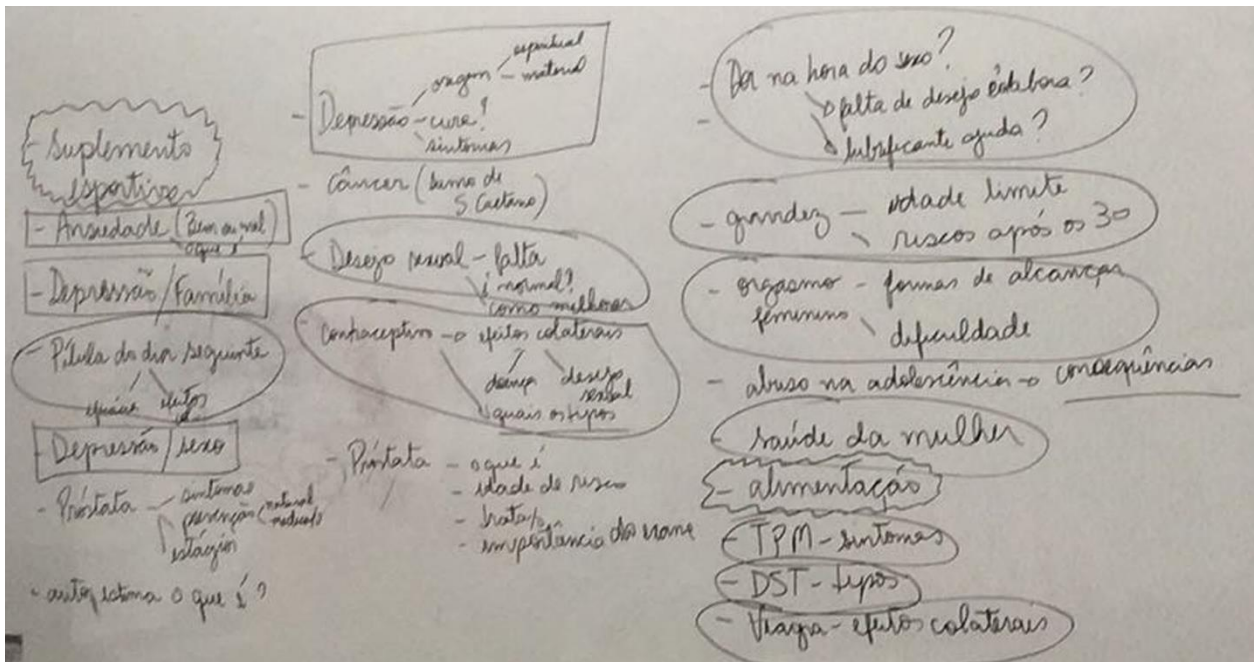 - Suplemento
esportivo
- Ansiedade (Bem ou mal)
o que é
- Depressão / Família
- Pílula do dia seguinte
efeitos
- Depressão / sexo
- Próstata - sintomas
prevenção (natural
estágios
- auto estima o que é?
espiritual
origem - material
- Depressão - cura?
sintomas
- Câncer (sumo de
S Caetano)
- Desejo sexual - falta
é normal?
como melhorar
- Contraceptivo - efeitos colaterais
doença desejo
sexual
quais os tipos
- Próstata - o que é
- idade de risco
- tratato
- importância do exame
- Dor na hora do sexo?
falta de desejo colabora?
lubrificante ajuda?
- gravidez - idade limite
riscos após os 30
- orgasmo - formas de alcançar
feminino
dificuldade
- abuso na adolescência - consequências
- saúde da mulher
- alimentação
- TPM - sintomas
- DST - tipos
- Viagra - efeitos colaterais